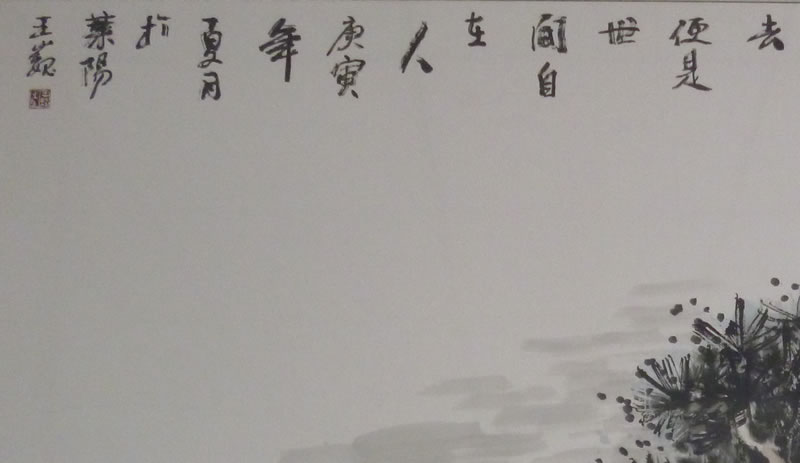 去
便是
世
间自
在
人
庚寅
年
夏月
於
莱陽
王巍